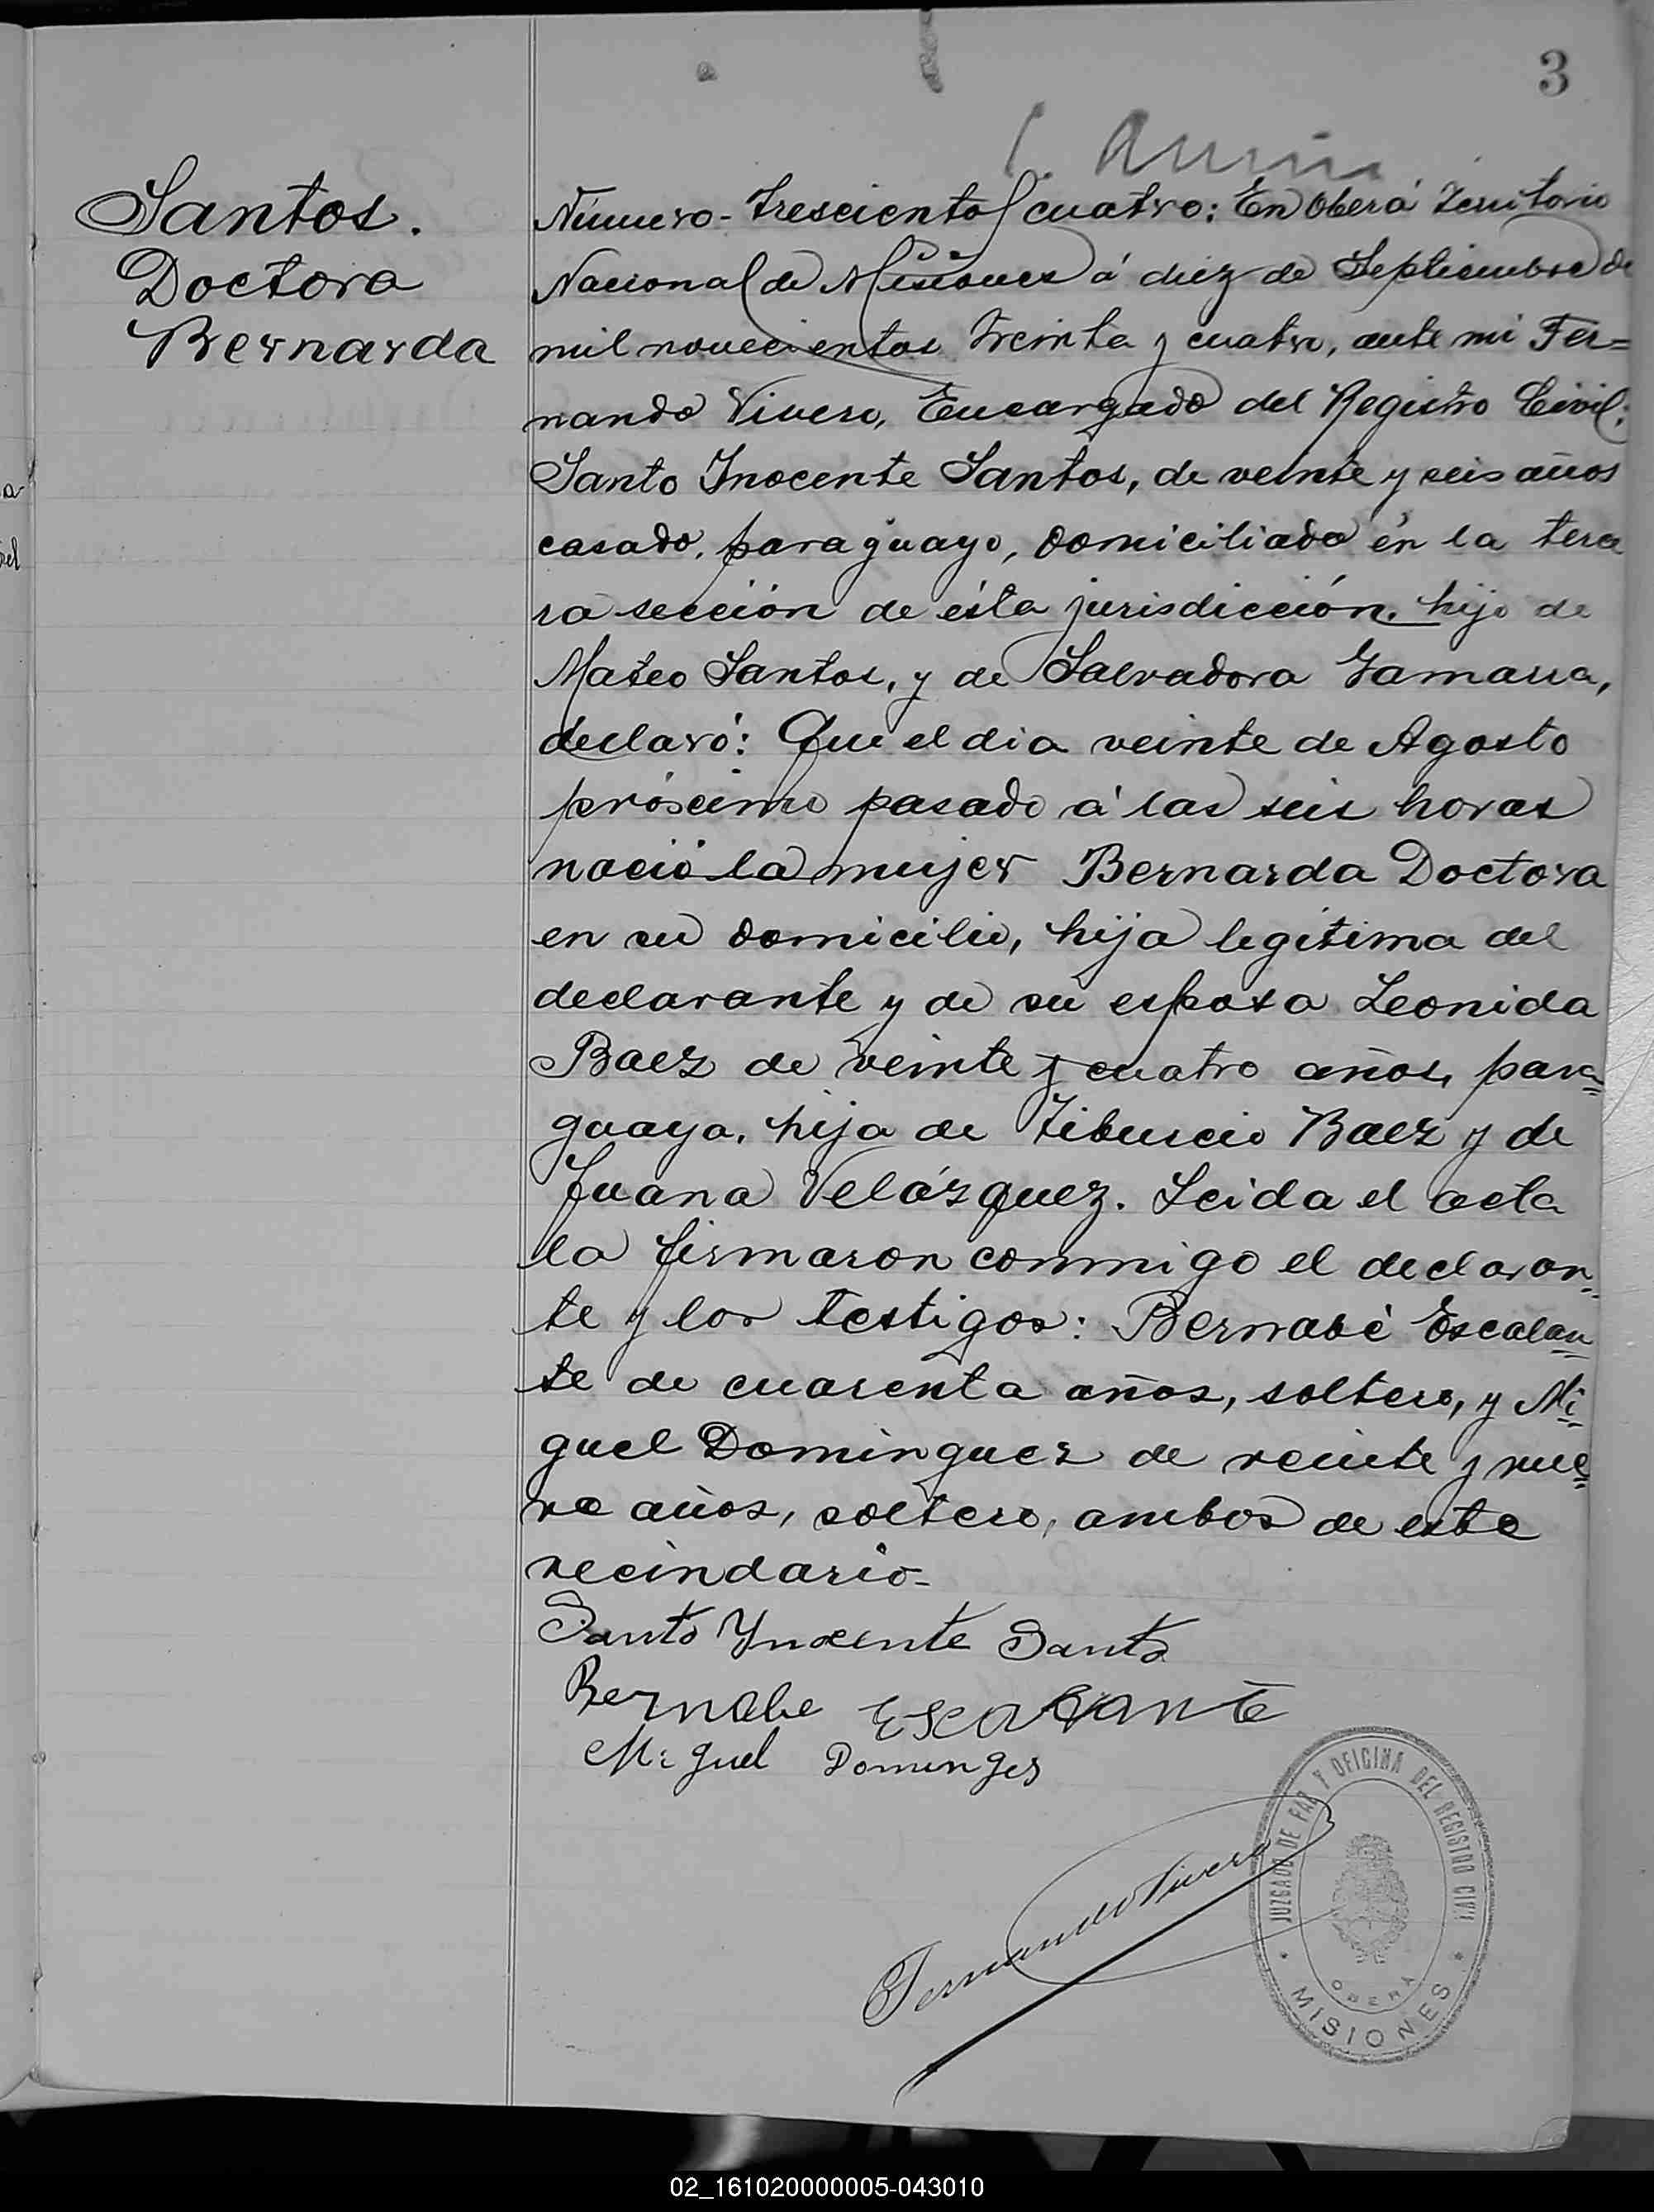 3
Santos.
Doctora
Bernarda
Número - trescientos cuatro: En Oberá Territorio
Nacional de Misiones á diez de Septiembre de
mil novecientos treinta y cuatro, ante mi Fer=
nando Vivero, Encargado del Registro Civil:
Santo Inocente Santos, de veinte y seis años
casado, paraguayo, domiciliado en la terce
ra sección de ésta jurisdicción. hijo de
Mateo Santos, y de Salvadora Gamarra,
declaró: Que el dia veinte de Agosto
próximo pasado á las seis horas
nació la mujer Bernarda Doctora
en su domicilio, hija legítima del
declarante y de su esposa Leonida
Baez de veinte y cuatro años, para=
guaya, hija de Tiburcio Baez y de
Juana Velázquez. Leida el acta
la firmaron conmigo el declaran=
te y los testigos: Bernabé Escalan=
te de cuarenta años, soltero, y Mi=
guel Dominguez de veinte y nue=
ve años, soltero, ambos de este
vecindario-
Santo Ynocente Santo
Bernabe Escalante
Miguel Dominges
Fernando Vivero
JUZGADO DE PAZ Y OFICINA DEL REGISTRO CIVIL
OBERÁ
* MISIONES *
02_161020000005-043010